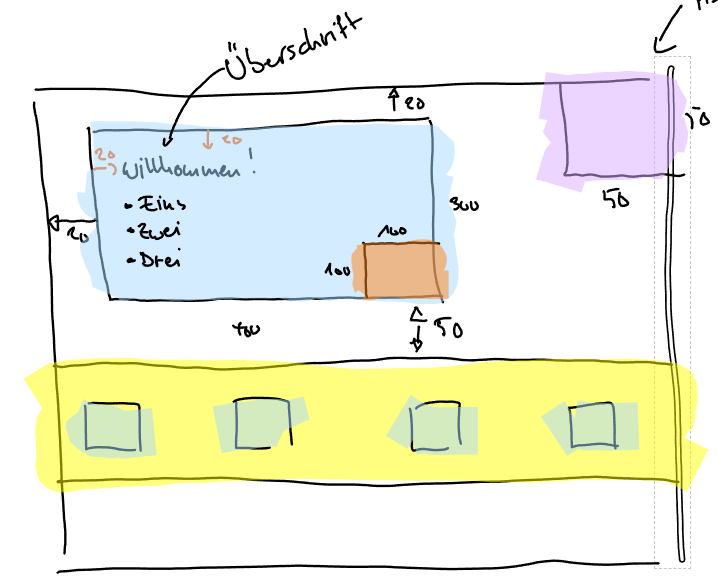 Überschrift
20
20
20
Willkommen!
• Eins
• Zwei
• Drei
20
300
100
100
50
50
50